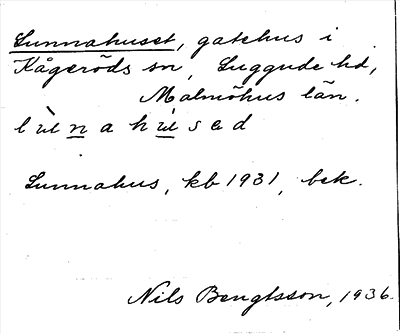 Sunnahuset, gatehus i
Kågeröds sn, Luggude hd,
Malmöhus län.
Sunnahus, kb 1931, bek.
Nils Bengtsson, 1936.